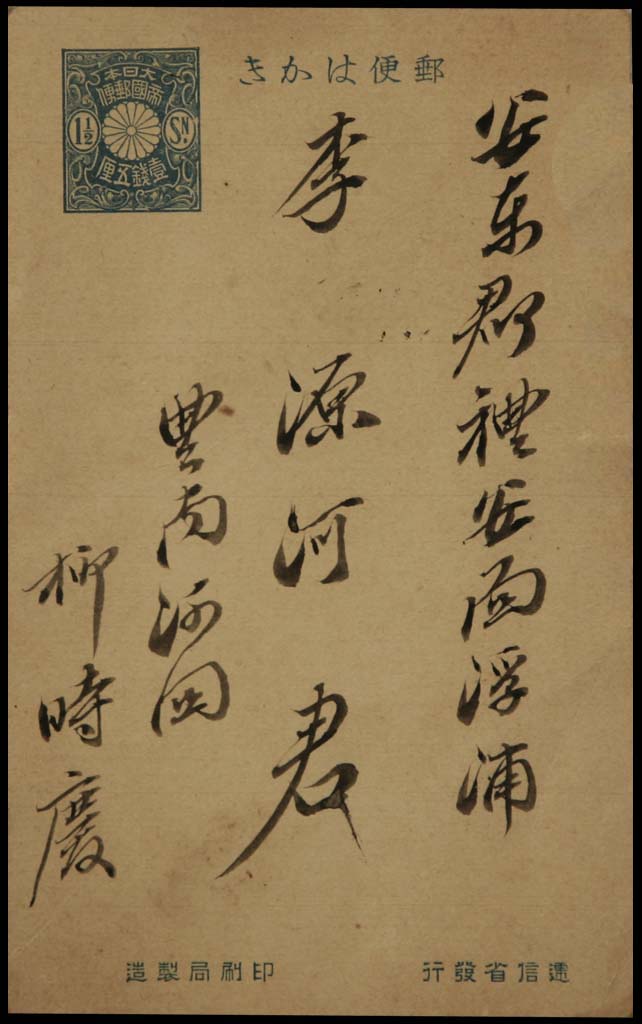 郵便はかき
大日本
帝國郵便
1½ SN.
壹錢五厘
安東郡禮安面浮浦
李源河君
豊南河回
柳時慶
遞信省發行
印刷局製造